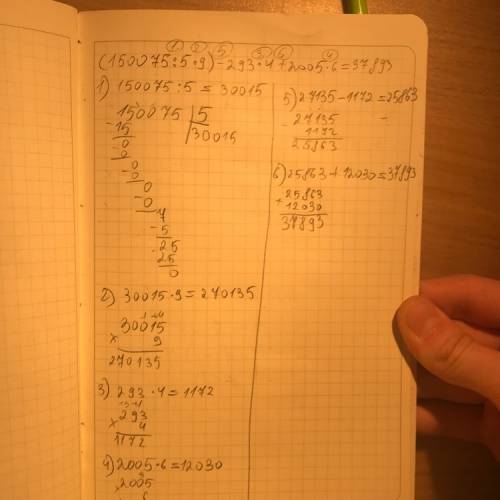 ① ② ⑤ ③ ⑥ ④
(150075:5·9)-293·4+2005·6=37893
1) 150075:5=30015
150075 | 5
-15 | 30015
-0
0
-0
0
-0
7
-5
-25
25
0
2) 30015·9=270135
1 4
30015
× 9
270135
3) 293·4=1172
3 1
293
× 4
1172
4) 2005·6=12030
3
×2005
6
5) 27135-1172=25863
- 27135
1172
25863
6) 25863+12030=37893
+ 25863
12030
37893